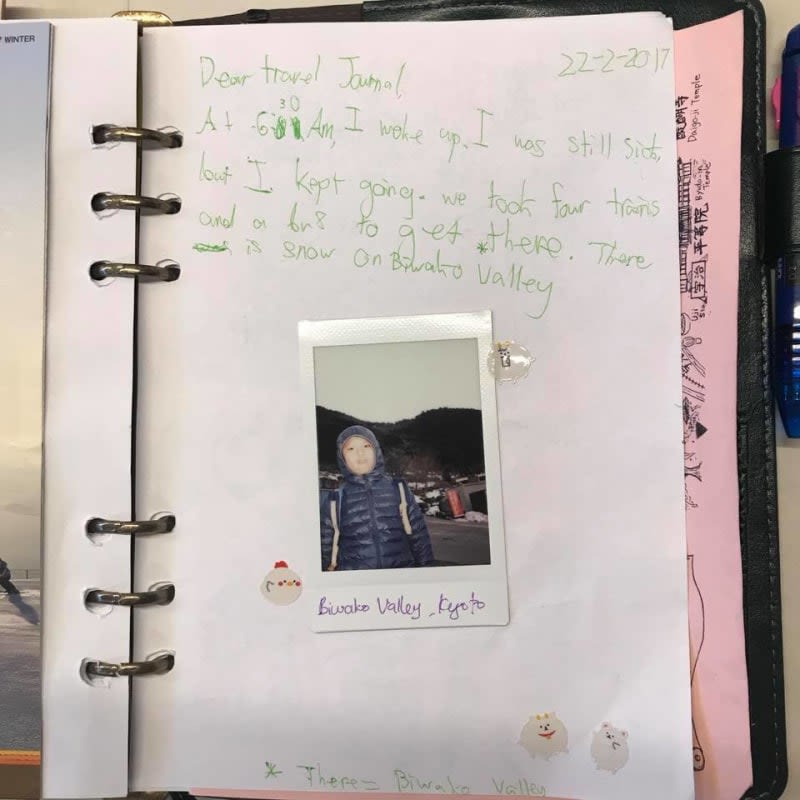 WINTER
Dear travel Journal, 22-2-2017
At 6:30 Am, I woke up. I was still sick,
but I kept going. we took four trains
and a bus to get *there. There
is snow on Biwako Valley
Biwako Valley, Kyoto
* There = Biwako Valley
醍醐寺 Daigo-ji Temple
平等院 Byodo-in Temple
宇治 Uji